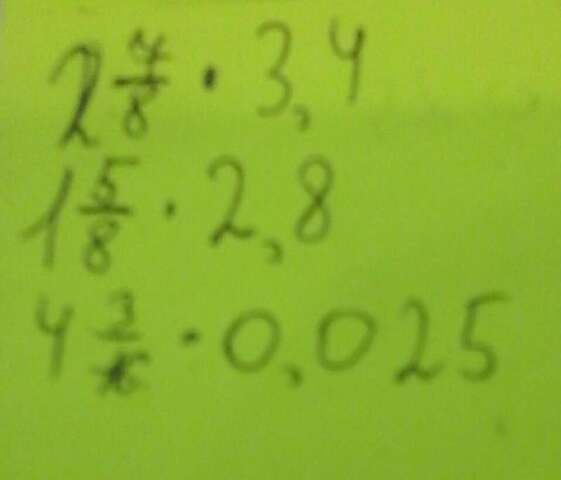 2 7/8 · 3,4
1 5/8 · 2,8
4 · 0,025